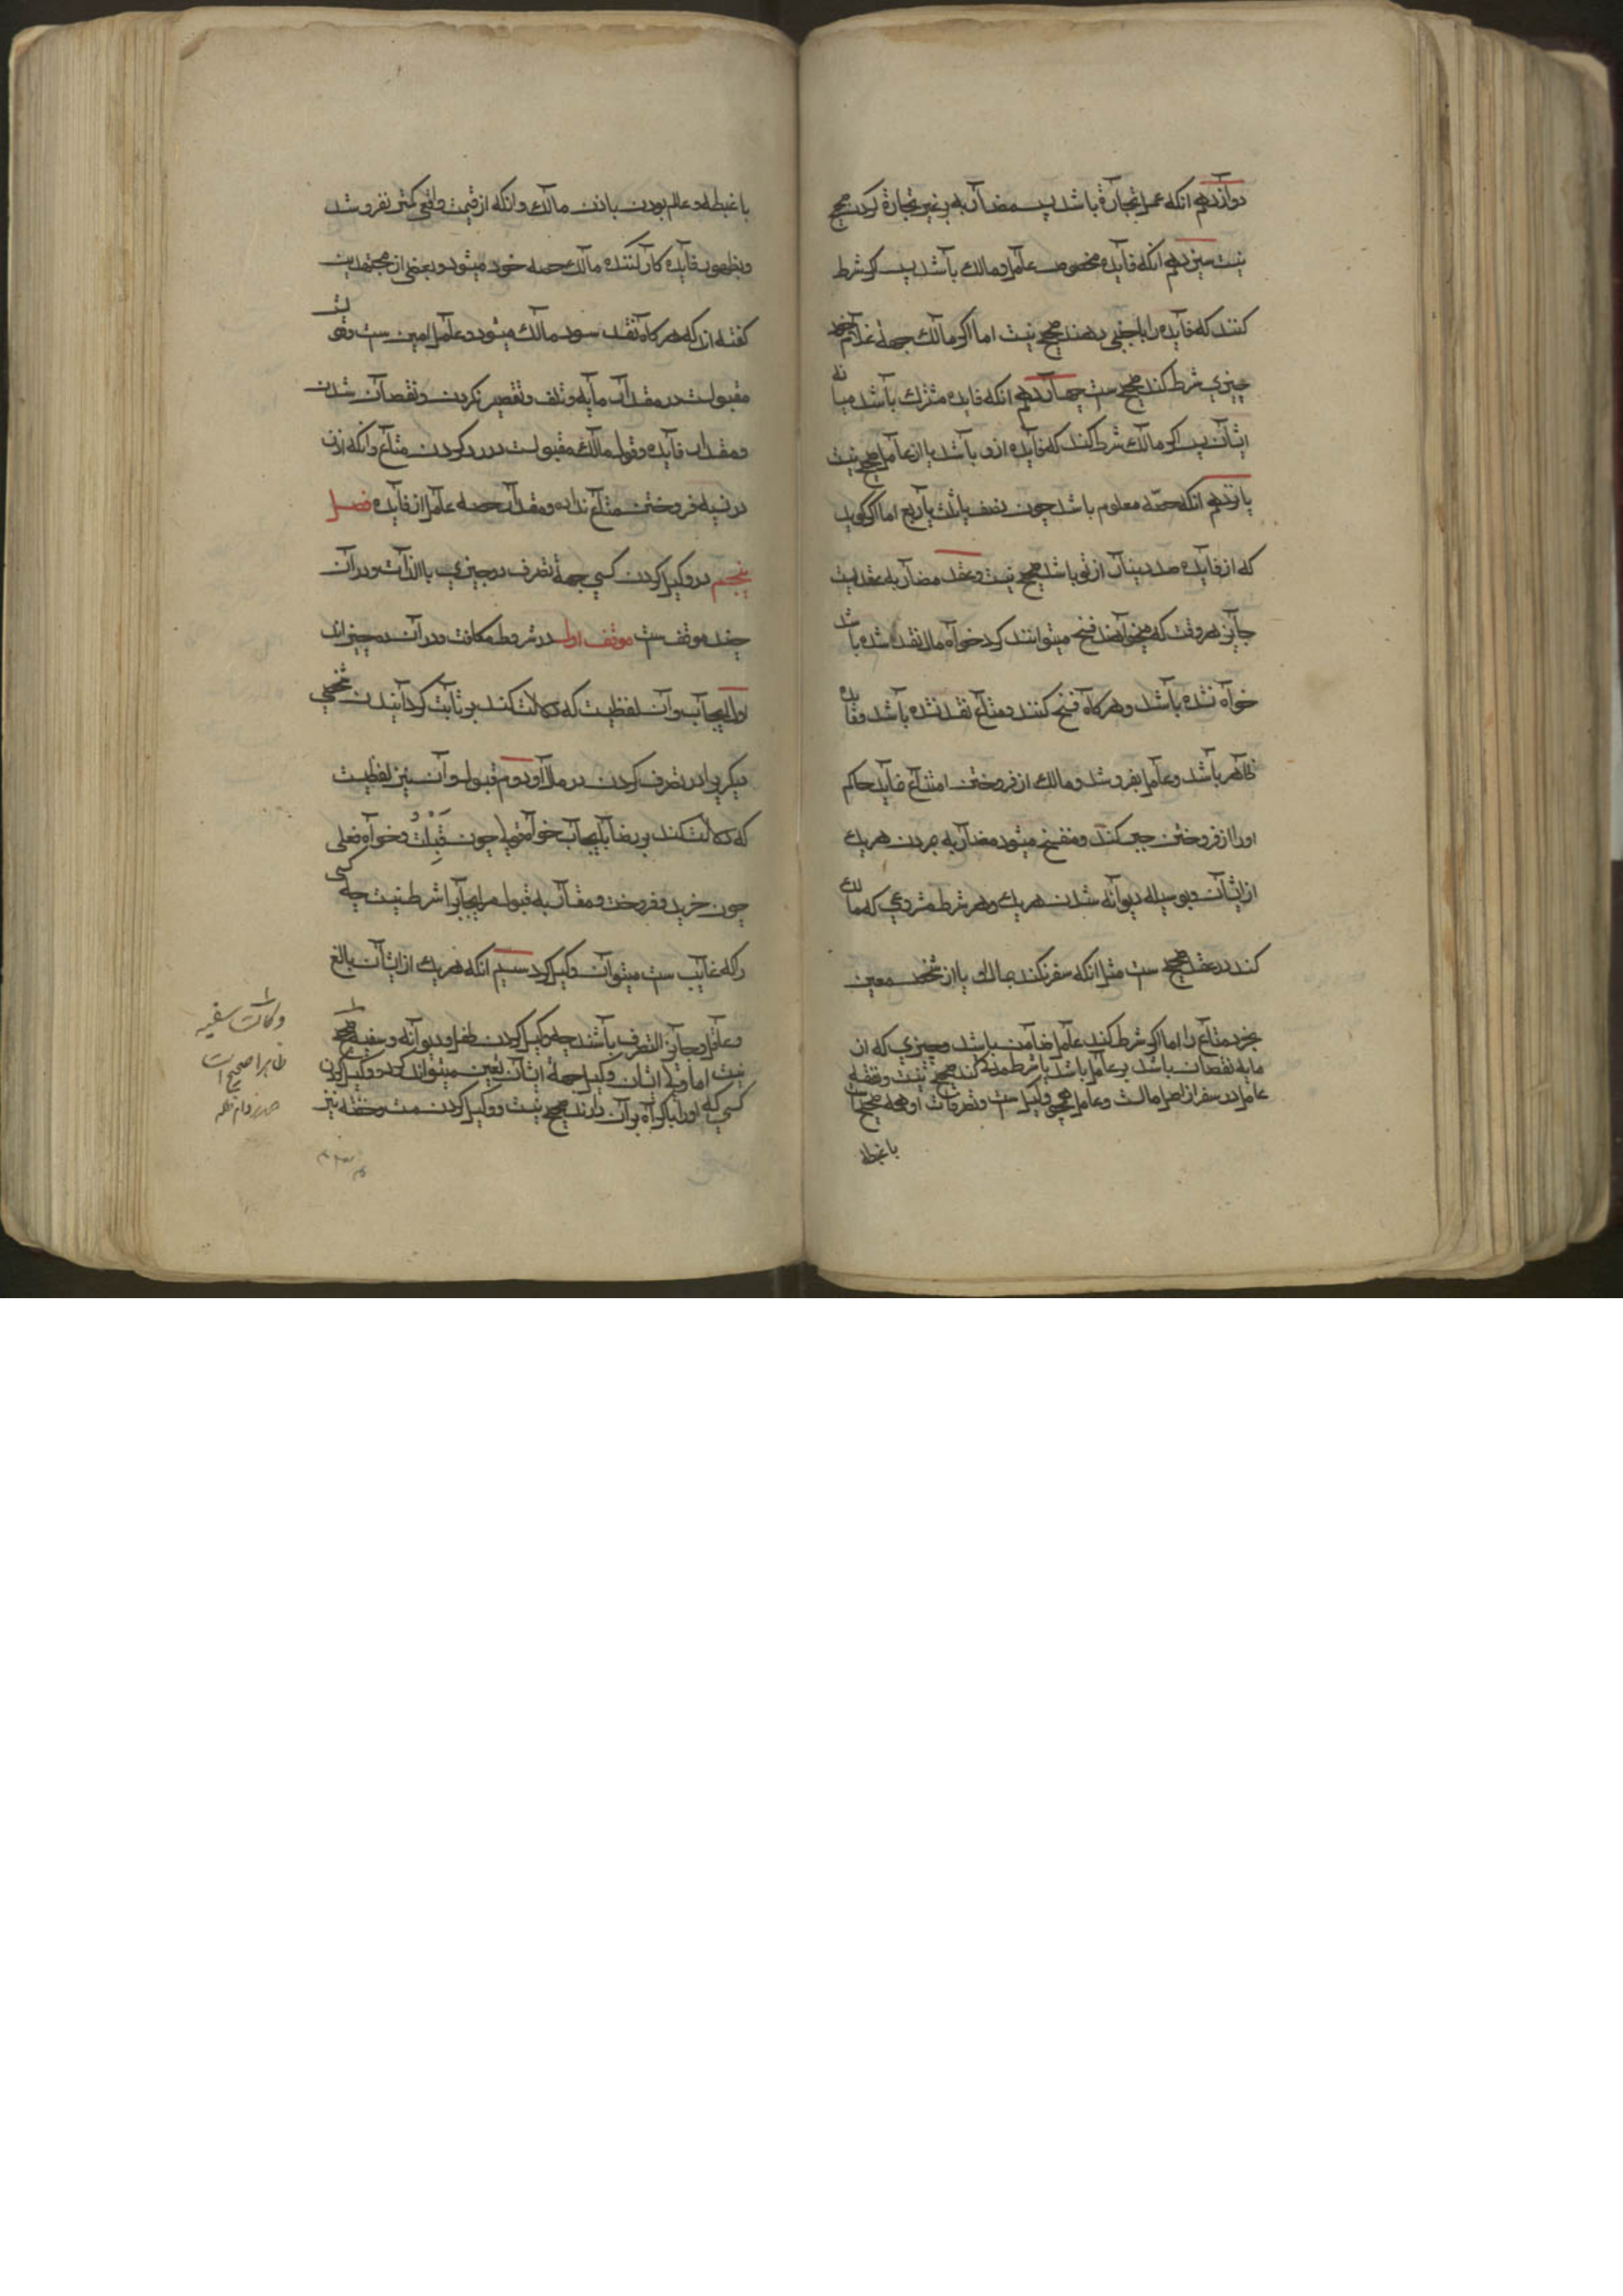 دوازدهم انکه عمل تجارة باشد پس مضاربه بر غیر تجارة کردن صحیح
نیست سیزدهم انکه فایده مخصوص عامل و مالك باشد پس اکر شرط
کنند که فایده را باجنبی بدهند صحیح نیست اما اکر مالك جهة غلام خود
چیزی شرط کند صحیح ست چهاردهم انکه فایده مشترك باشد میانه
ایشان پس اکر مالك شرط کند که فایده ازو باشد یا از عامل صحیح نیست
پانزدهم انکه حصّه معلوم باشد چون نصف یا ثلث یا ربع اما اکر کوید
که از فایده صد دینار از تو باشد صحیح نیست و عقد مضاربه عقدیست
جایز هر وقت که میخواهند فسخ میتوانند کرد خواه مال نقد شده باشد
خواه نشده باشد و هرکاه فسخ کنند و متاع نقد نشده باشد و فایده
ظاهر باشد و عامل بفروشد و مالك از فروختن امتناع نماید حاکم
اورا از فروختن جبر کند و منفسخ میشود مضاربه بمردن هر یك
از ایشان و بوسیله دیوانه شدن هر یك و هر شرط مشروعی که مالك
کند در عقد صحیح ست مثل انکه سفر نکند بمال یا از شخص معین
بخرد متاع را اما اکر شرط کند عامل ضامن باشد و چیزی که از
مایه نقصان باشد بر عامل باشد یا شرط مدة کند صحیح نیست و نفقه
عامل در سفر از اصل مالست و عامل همچو وکیل ست و تصرفات او همه صحیح است
باغبطه
باغبطه و عالم بودن باذن مالك و انکه از قیمت واقعی کمتر نفروشد
و بظهور فایده کار کننده مالك حصه خود میشود و بعضی از مجتهدین
کفته اند که هرکاه نقد سود مالك میشود و عامل امین ست و قولش
مقبولست در مقدار مایه و تلف و تقصیر نکردن و نقصان شدن
و مقدار فایده و قول مالك مقبولست در رد کردن متاع و انکه اذن
در نسیه فروختن متاع نداده و مقدار حصه عامل از فایده فصل
پنجم در وکیل کردن کسی جهة تصرف در چیزی بالذات و در آن
چند موقف ست موقف اول در شروط وکالت و در آن ده چیز اند
اول ایجاب و آن لفظیست که دلالت کند بر ثابت کردانیدن شخصی
دیکریرا در تصرف کردن در مال او دوم قبول و آن نیز لفظیست
که دلالت کند بر رضا بایجاب خواه قولی چون قَبِلْتُ و خواه فعلی
چون خرید و فروخت و مقارنه قبول مر ایجاب را شرط نیست چه کسی
را که غایب ست میتوان وکیل کرد سیم انکه هر یك از ایشان بالغ
و عاقل و جایز التصرف باشند چه وکیل کردن طفل و دیوانه و سفیه صحیح
نیست اما ولی ایشان وکیل جهة ایشان تعیین میتواند کرد و وکیل کردن
کسی که اورا باکراه بر آن دارند صحیح نیست و وکیل کردن مست و خفته نیز
وکالت سفیه
ظاهرا صحیح است